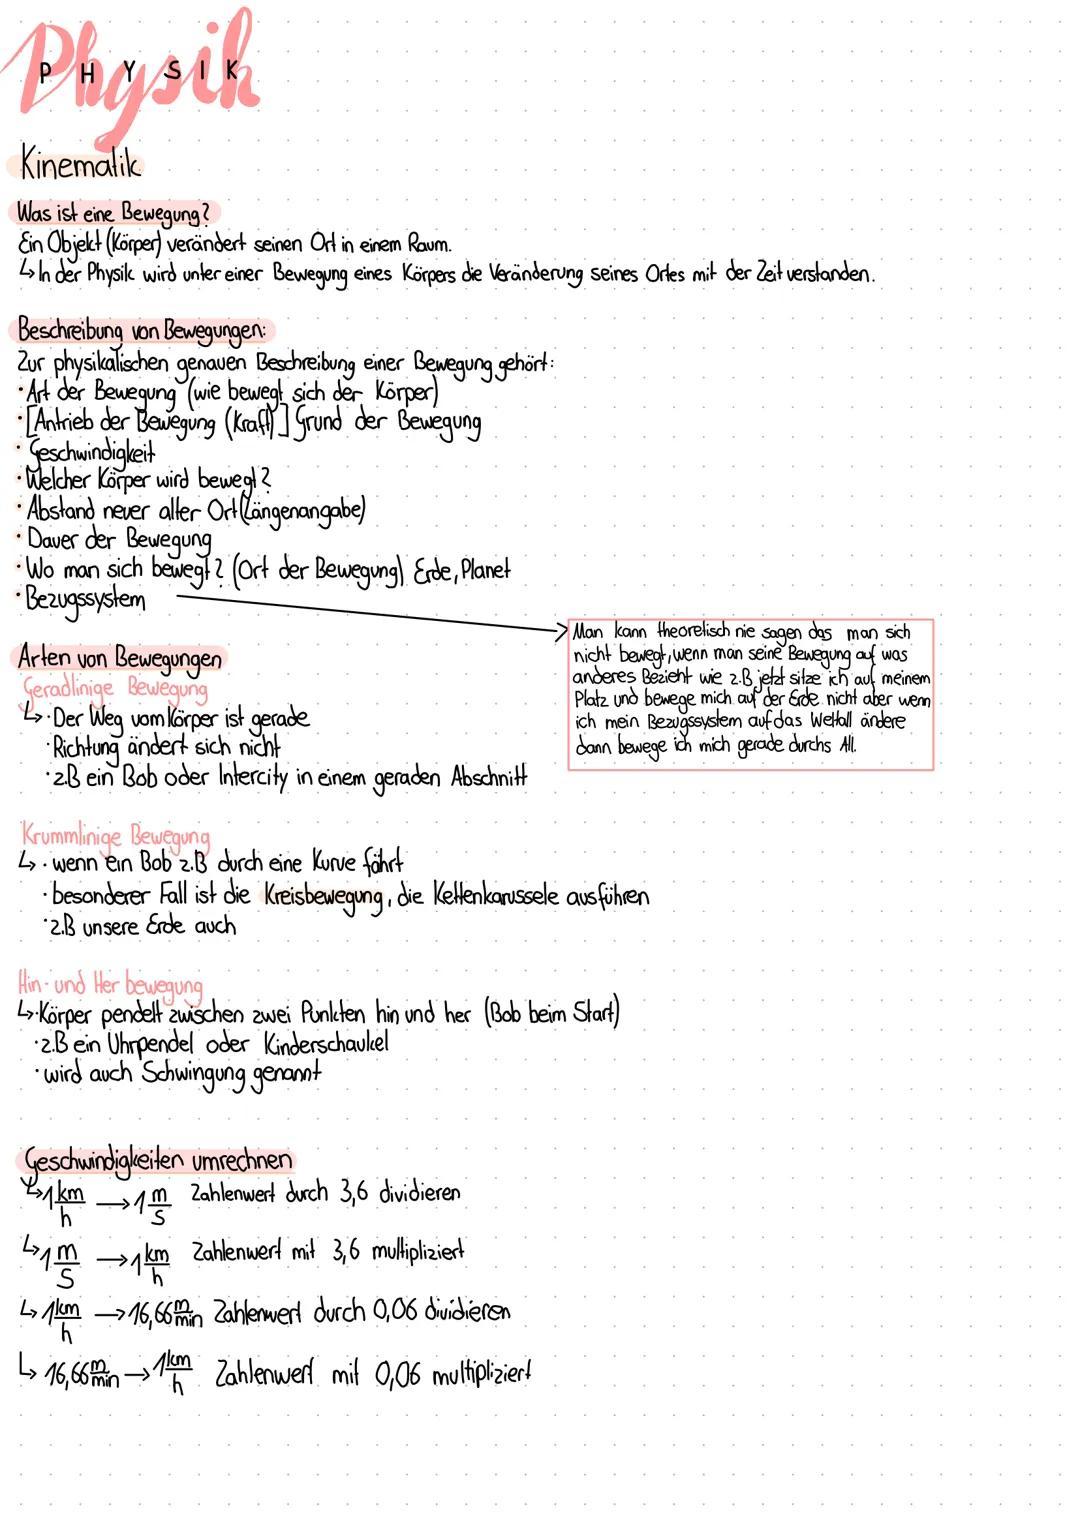 Physik
PHYSIK
Kinematik
Was ist eine Bewegung?
Ein Objekt (Körper) verändert seinen Ort in einem Raum.
↳ In der Physik wird unter einer Bewegung eines Körpers die Veränderung seines Ortes mit der Zeit verstanden.
Beschreibung von Bewegungen:
Zur physikalischen genauen Beschreibung einer Bewegung gehört:
· Art der Bewegung (wie bewegt sich der Körper)
· [Antrieb der Bewegung (Kraft)] Grund der Bewegung
· Geschwindigkeit
· Welcher Körper wird bewegt?
· Abstand neuer alter Ort (Längenangabe)
· Dauer der Bewegung
· Wo man sich bewegt? (Ort der Bewegung) Erde, Planet
· Bezugssystem
Man kann theoretisch nie sagen das man sich
nicht bewegt, wenn man seine Bewegung auf was
anderes Bezieht wie z.B jetzt sitze ich auf meinem
Platz und bewege mich auf der Erde nicht aber wenn
ich mein Bezugssystem auf das Weltall ändere
dann bewege ich mich gerade durchs All.
Arten von Bewegungen
Geradlinige Bewegung
↳ · Der Weg vom Körper ist gerade
· Richtung ändert sich nicht
· z.B ein Bob oder Intercity in einem geraden Abschnitt
Krummlinige Bewegung
↳ · wenn ein Bob z.B durch eine Kurve fährt
· besonderer Fall ist die Kreisbewegung, die Kettenkarussele ausführen
· z.B unsere Erde auch
Hin- und Her bewegung
↳ · Körper pendelt zwischen zwei Punkten hin und her (Bob beim Start)
· z.B ein Uhrpendel oder Kinderschaukel
· wird auch Schwingung genannt
Geschwindigkeiten umrechnen
↳ 1 km/h → 1 m/s Zahlenwert durch 3,6 dividieren
↳ 1 m/s → 1 km/h Zahlenwert mit 3,6 multipliziert
↳ 1 km/h → 16,66 m/min Zahlenwert durch 0,06 dividieren
↳ 16,66 m/min → 1 km/h Zahlenwert mit 0,06 multipliziert